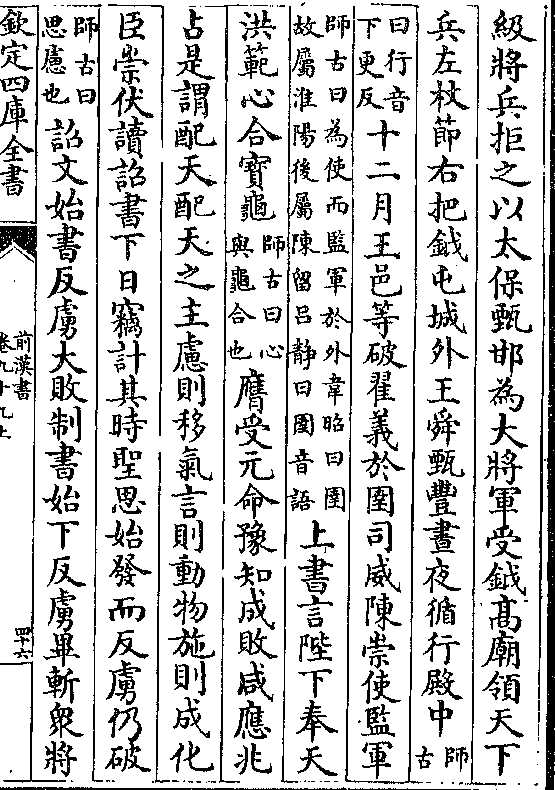 級將兵拒之以太保甄邯為大將軍受鉞髙廟領天下
兵左杖節右把鉞屯城外王舜甄豐晝夜循行殿中師古
曰行音下更反十二月王邑等破翟義於圉司威陳崇使監軍
師古曰為使而監軍於外韋昭曰圉故屬淮陽後屬陳留吕静曰圉音語上書言陛下奉天
洪範心合寶龜師古曰心與龜合也膺受元命豫知成敗咸應兆
占是謂配天配天之主慮則移氣言則動物施則成化
臣崇伏讀詔書下日竊計其時聖思始發而反虜仍破
師古曰思慮也詔文始書反虜大敗制書始下反虜畢斬衆將
欽定四庫全書
前漢書
卷九十九上
四十六